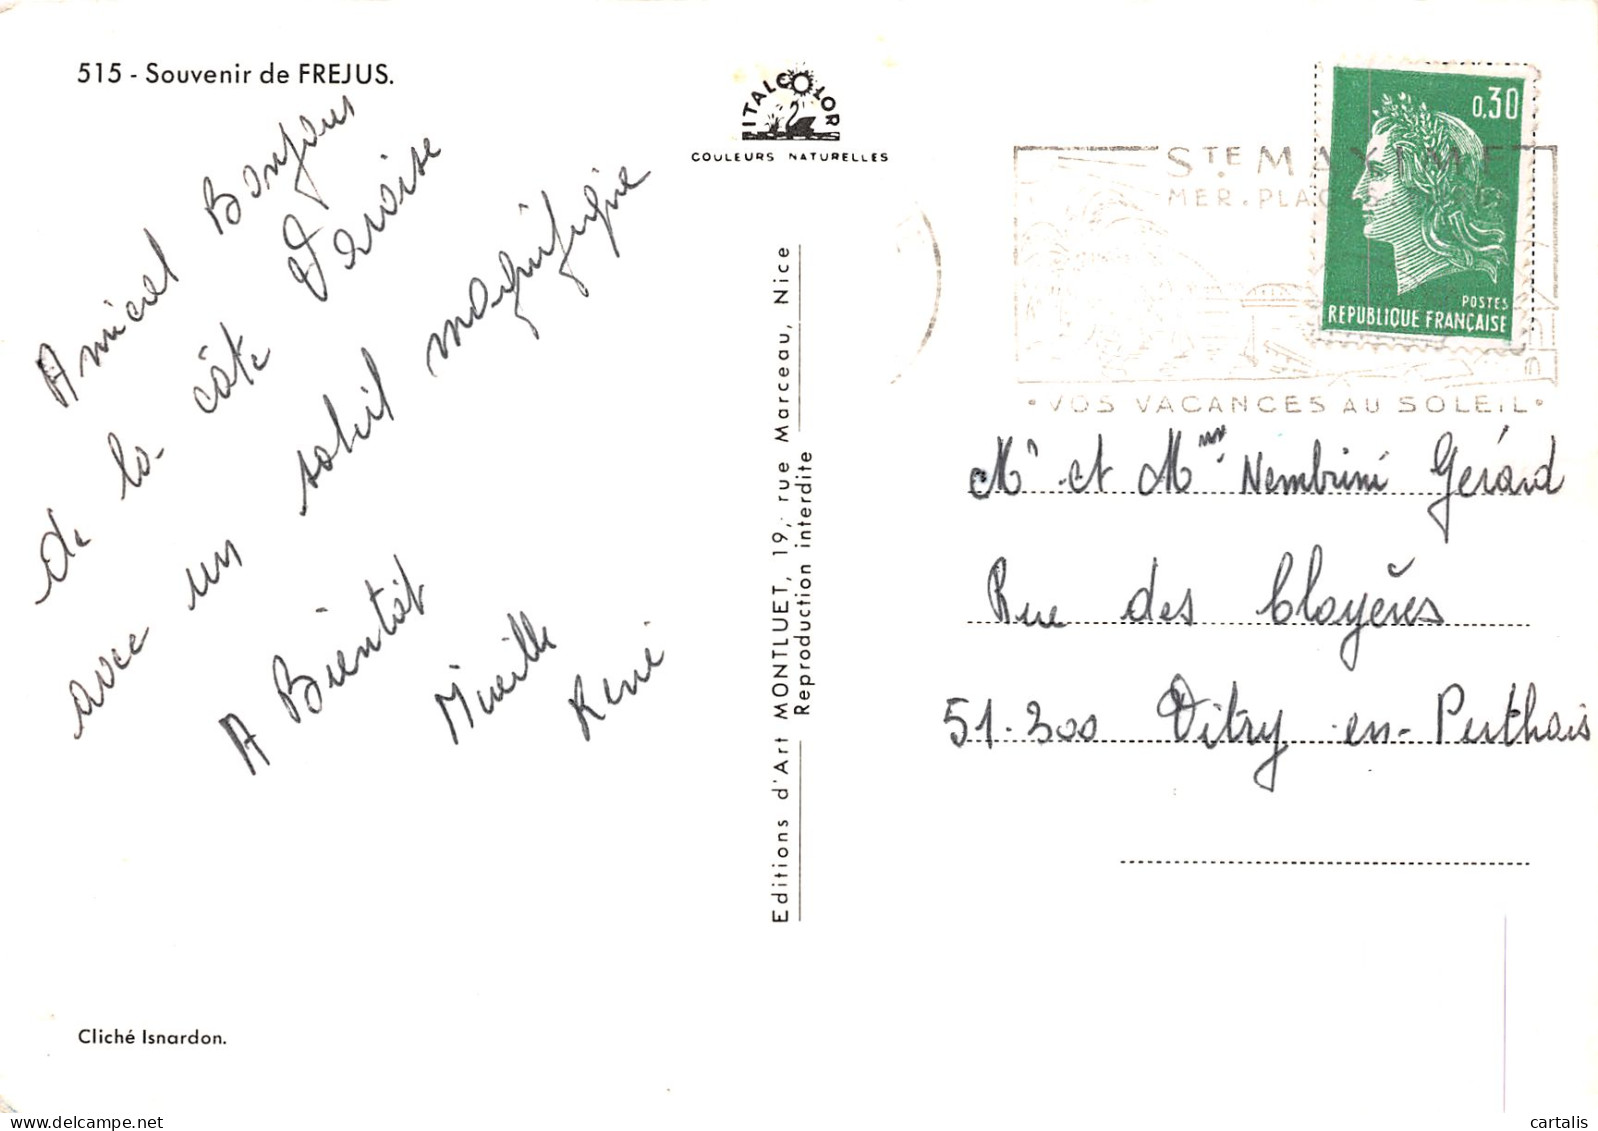 515 - Souvenir de FREJUS.
Amical Bonjour
de la côte Varoise
avec un soleil magnifique
A Bientôt
Mireille
René
Cliché Isnardon.
ITALCOLOR
COULEURS NATURELLES
Editions d'Art MONTLUET, 19, rue Marceau, Nice
Reproduction interdite
0,30
POSTES
REPUBLIQUE FRANÇAISE
STE MAXIME
MER. PLAGES
• VOS VACANCES AU SOLEIL •
Mr et Mme Nembrini Gérard
Rue des Cloyères
51.300 Vitry-en-Perthois
cartalis